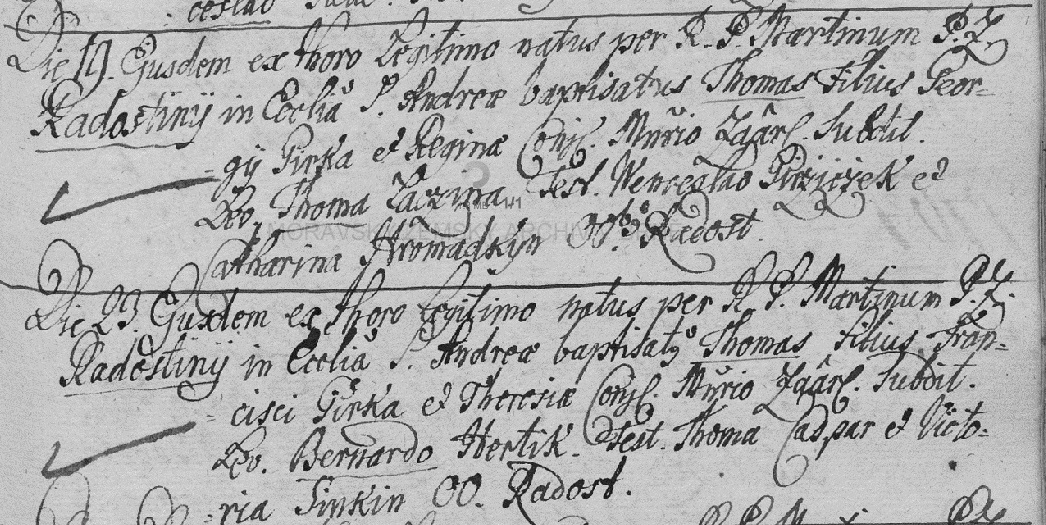 Die 19. Ejusdem ex thoro Legitimo natus per R. P. Martinum P. Z.
Radostinij in Ecclia S. Andreæ baptisatus Thomas Filius Geor-
gij Pirka et Reginæ Conj. Mrio Zaar. Subdit.
Lev. Thoma Test. Wenceslao et
Catharina Hromadkin Radost.
MORAVSKÝ ZEMSKÝ ARCHIV
Die 23. Ejusdem ex thoro legitimo natus per R. P. Martinum P. Z.
Radostinij in Ecclia S. Andreæ baptisatus Thomas Filius Fran-
cisci Pirka et Theresiæ Conj. Mrio Zaar. Subdit.
Lev. Bernardo Hertik. Test. Thoma Caspar et Victo-
ria OO. Radost.